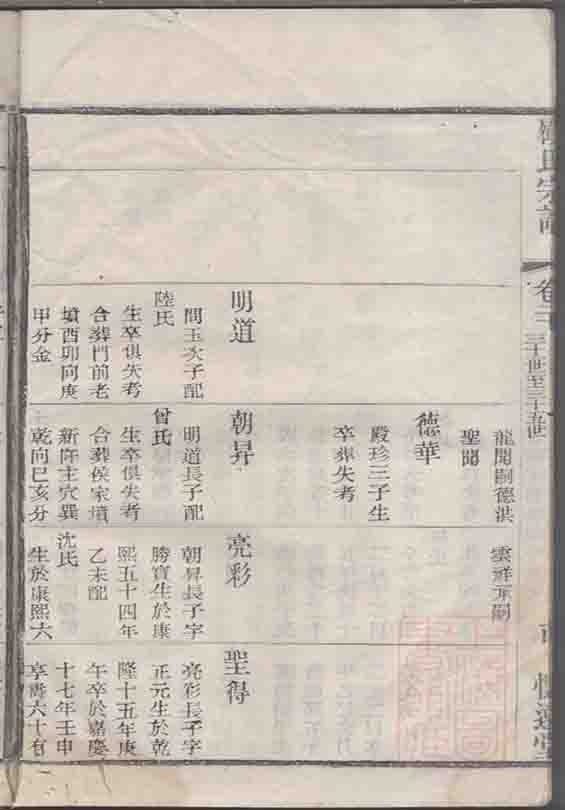 氏宗譜
卷二
龍開嗣德洪
聖開
德華
殿珍三子生
卒葬失考
雲祥
明道
問玉次子配
陸氏
生卒俱失考
合葬門前老
墳酉卯向庚
甲分金
朝昇
明道長子配
曾氏
生卒俱失考
合葬侯家墳
新阡主穴巽
乾向巳亥分
亮彩
朝昇長子字
勝寶生於康
熙五十四年
乙未配
沈氏
生於康熙六
聖得
亮彩長子字
正元生於乾
隆十五年庚
午卒於嘉慶
十七年壬申
享壽六十有